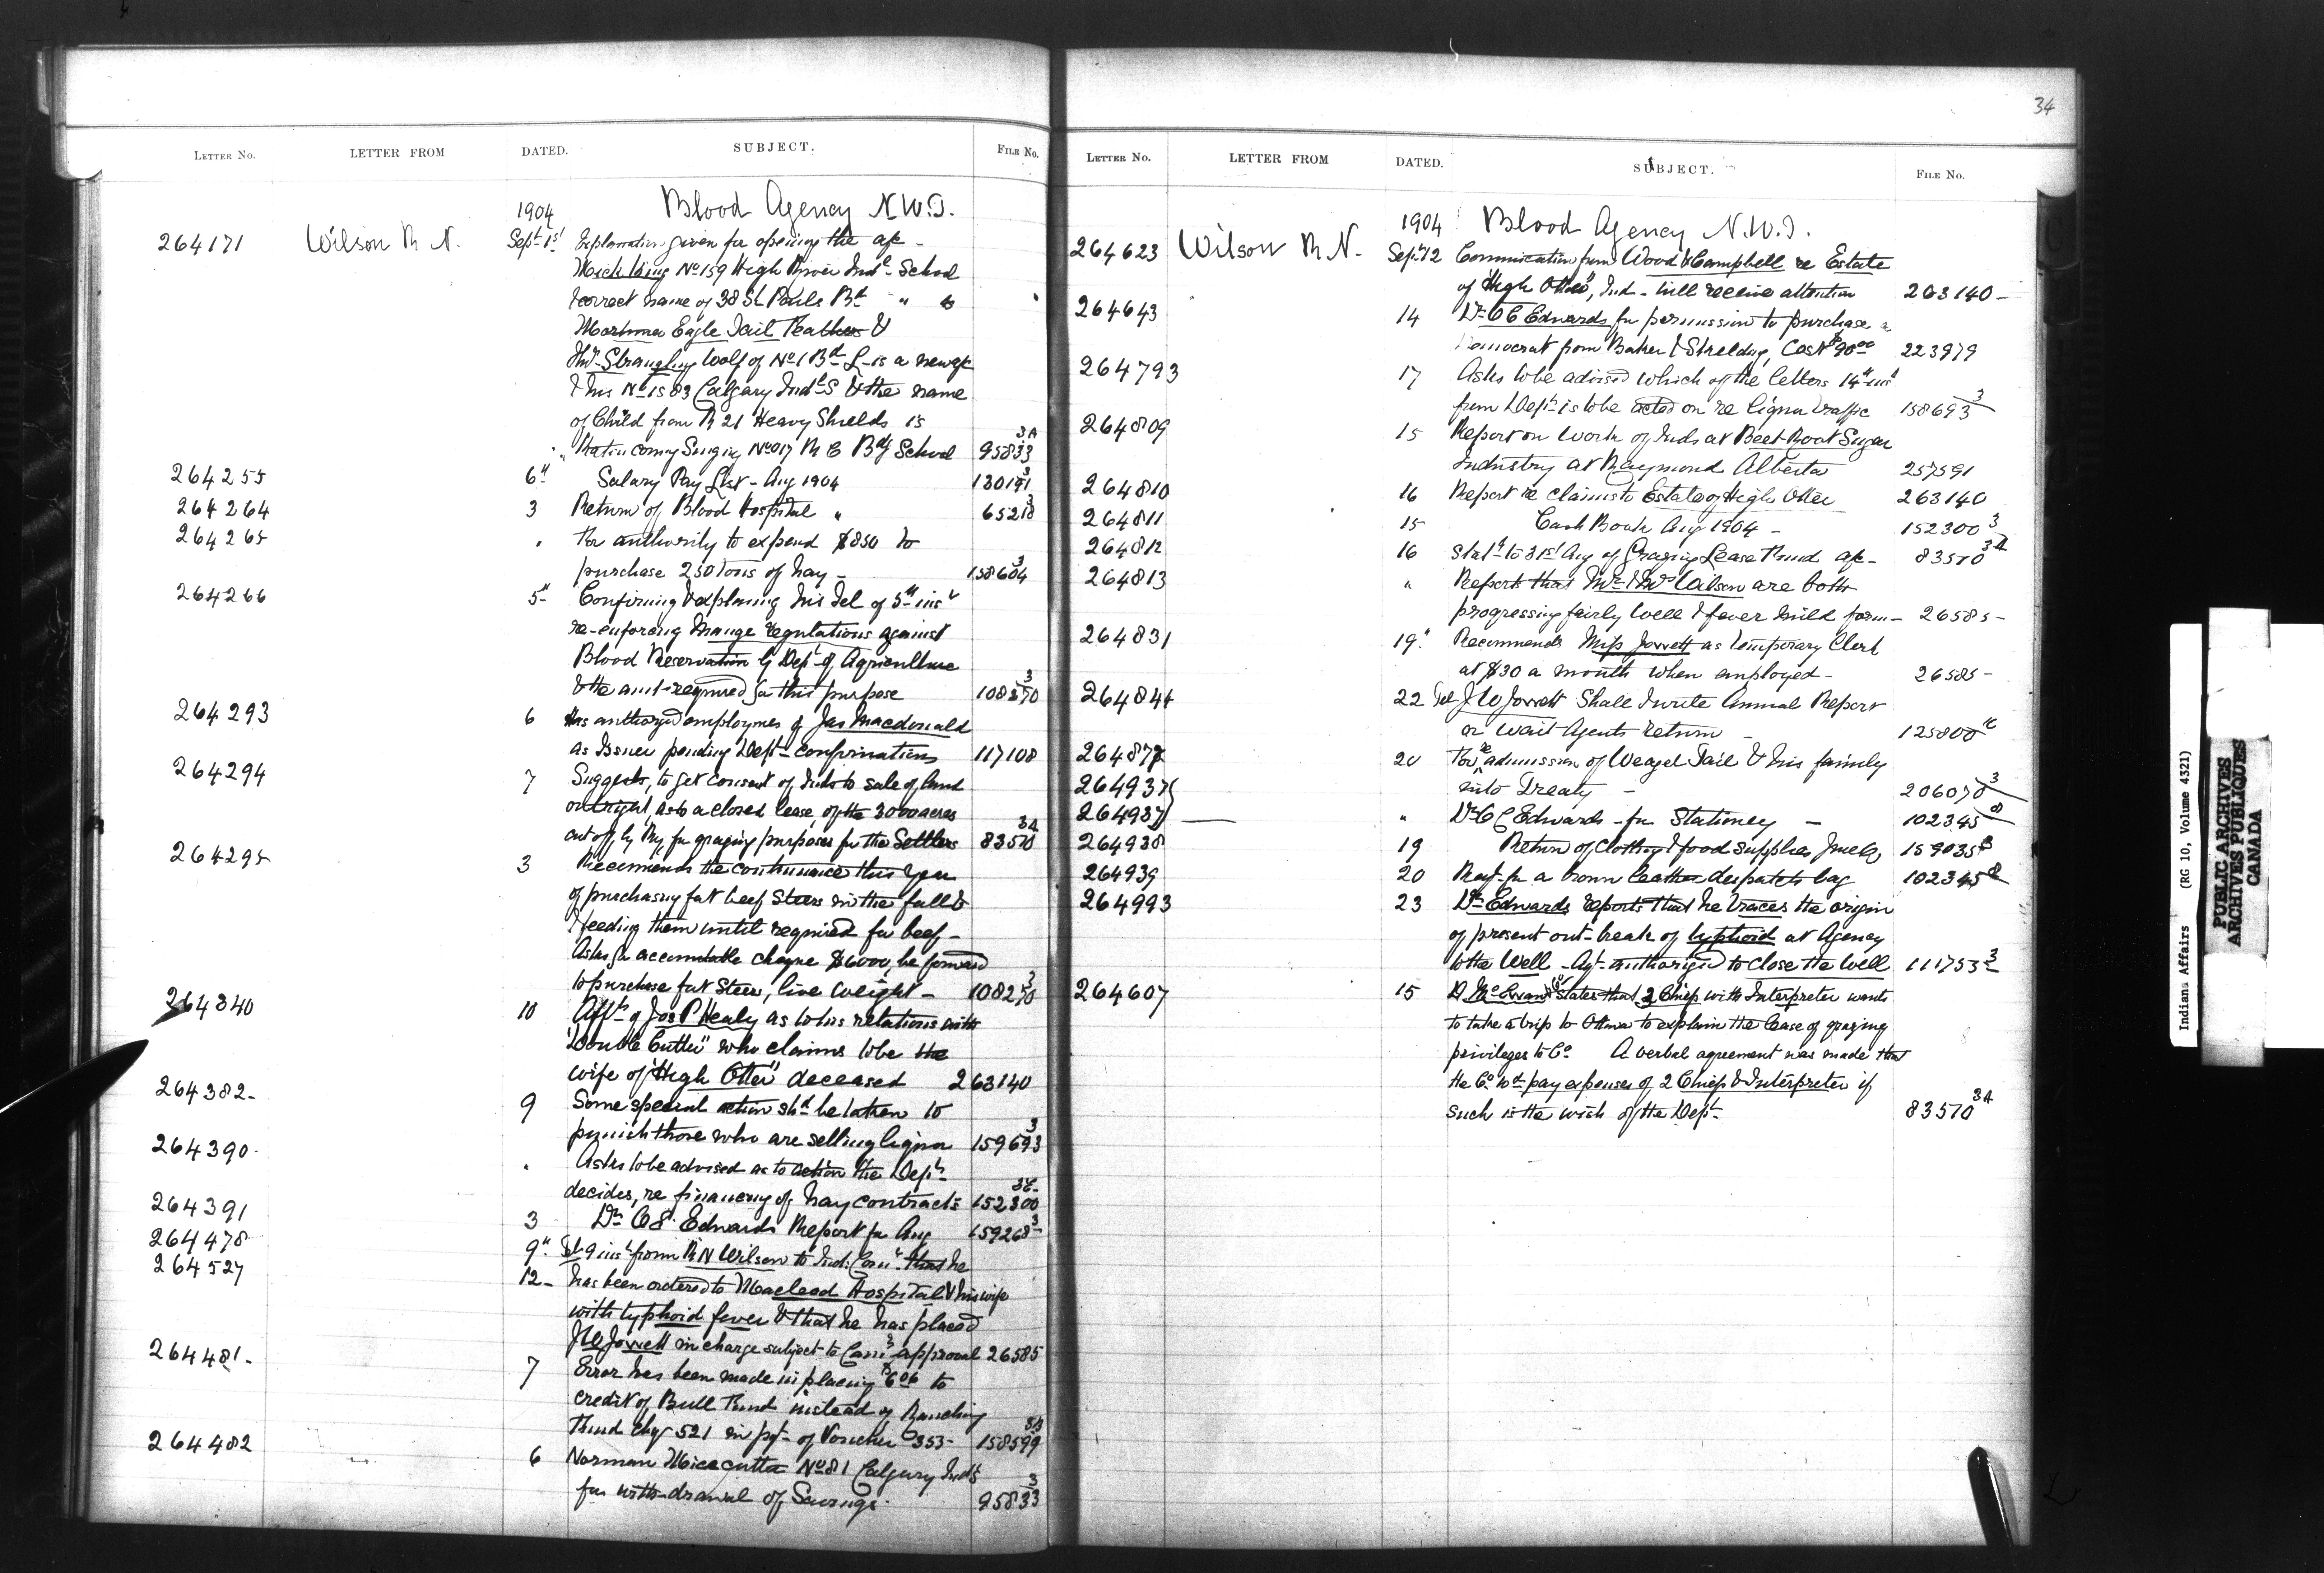 34
LETTER NO. LETTER FROM DATED. SUBJECT. FILE No.
1904 Blood Agency N.W.T.
264171 Wilson R N. Sept 1st Explanation given for opening the a/c -
Mick King No 159 High River Indl School
& correct name of 38 St Pauls Bd " to
Mortimer Eagle Tail Feathers &
Strangling Wolf of No 1 Bd S is a new a/c
& his No is 83 Calgary Indl S & the name
of Child from R 21 Heavy Shields is
coming Singing No 017 R C Bdg School 95833 3A
264255 6" Salary Pay List - Aug 1904 130191 3
264264 3 Return of Blood Hospital " 65218 3
264265 " For authority to expend $850 to
purchase 250 tons of hay - 158604 3
264266 5" Confirming & explaining his Tel of 5th inst
re-enforcing Mange regulations against
Blood Reservation by Dept of Agriculture
& the amt required for this purpose 108270 3
264293 6 Has authorized employmen of Jas Macdonald
as Issuer pending Dept confirmation 117108
264294 7 Suggests, to get consent of Inds to sale of land
outright, as to a closed lease, of the 3000 acres
cut off by Ry for grazing purposes for the Settlers 83570 3A
264295 3 Recommends the continuance this year
of purchasing fat beef Steers in the fall &
& feeding them until required for beef -
Asks for accountable cheque $6000, be forward
to purchase fat Steers, live weight - 108270 3
264340 10 Affts of Jos P Healy as to his relations with
"Double Cutter" who claims to be the
wife of "High Otter" deceased 263140
264382- 9 Some special action shd be taken to
punish those who are selling liquor 159693 3
264390. " Asks to be advised as to action the Dept
decides, re financing of hay contracts 152300 3C
264391 3 Dr O C Edwards Report for Aug 159268 3
264478 9" Tel 9 inst from R N Wilson to Ind: Com that he
264527 12- has been ordered to Macleod Hospital & his wife
with typhoid fever & that he has placed
J W Jowett in charge subject to Coms approval 26585
264481- 7 Error has been made in placing $6.06 to
credit of Bull Fund instead of Ranching
Fund chq 521 in pyt of Voucher 353- 158599 3B
264482 6 Norman Mice cutter No 81 Calgary Inds
for with-drawal of Savings. 95833 3
LETTER NO. LETTER FROM DATED. SUBJECT. FILE No.
1904 Blood Agency N.W.T.
264623 Wilson R N. Sept 12 Comunication from Wood & Campbell re Estate
of "High Otter", Ind - will receive attention 263140-
264643 14 Dr O C Edwards for permission to purchase a
Democrat from Baker & Cost $90.00 223979
264793 17 Asks to be advised which of the letters 14th inst
from Dept is to be acted on re liquor traffic 158693 3
264809 15 Report on work of Inds at Beet-Root Sugar
Industry at Raymond Alberta 257591
264810 16 Report re claims to Estate of High Otter 263140
264811 15 Cash Book Aug 1904 - 152300 3
264812 16 Statt to 31st Aug of Grazing Lease Fund a/c - 83570 3A
264813 " Report that Mr & Mrs Wilson are both
progressing fairly well & fever mild form- 26585-
264831 19" Recommends Miss Jowett as temporary Clerk
at $30 a month when employed - 26585-
264844 22 Tel J W Jowett Shall I write Annual Report
or wait Agents return - 125800
264872 20 For re admission of Weazel Tail & his family
264937 into Treaty - 206078 3
264937 " Dr O C Edwards - for Stationery - 102345
264938 19 Return of Clothing & food supplies June 159035
264939 20 Reqt for a brown leather despatch bag 102345
264993 23 Dr Edwards reports that he traces the origin
of present out-break of typhoid at Agency
to the Well - Agt - authorized to close the well 111753 3
264607 15 D McEwan states that 2 Chiefs with Interpreter wants
to take a trip to Ottawa to explain the lease of grazing
privileges to Co. A verbal agreement was made that
the Co wd pay expenses of 2 Chiefs & Interpreter if
such is the wish of the Dept- 83570 3A
Indian Affairs (RG 10, Volume 4321)
PUBLIC ARCHIVES
ARCHIVES PUBLIQUES
CANADA